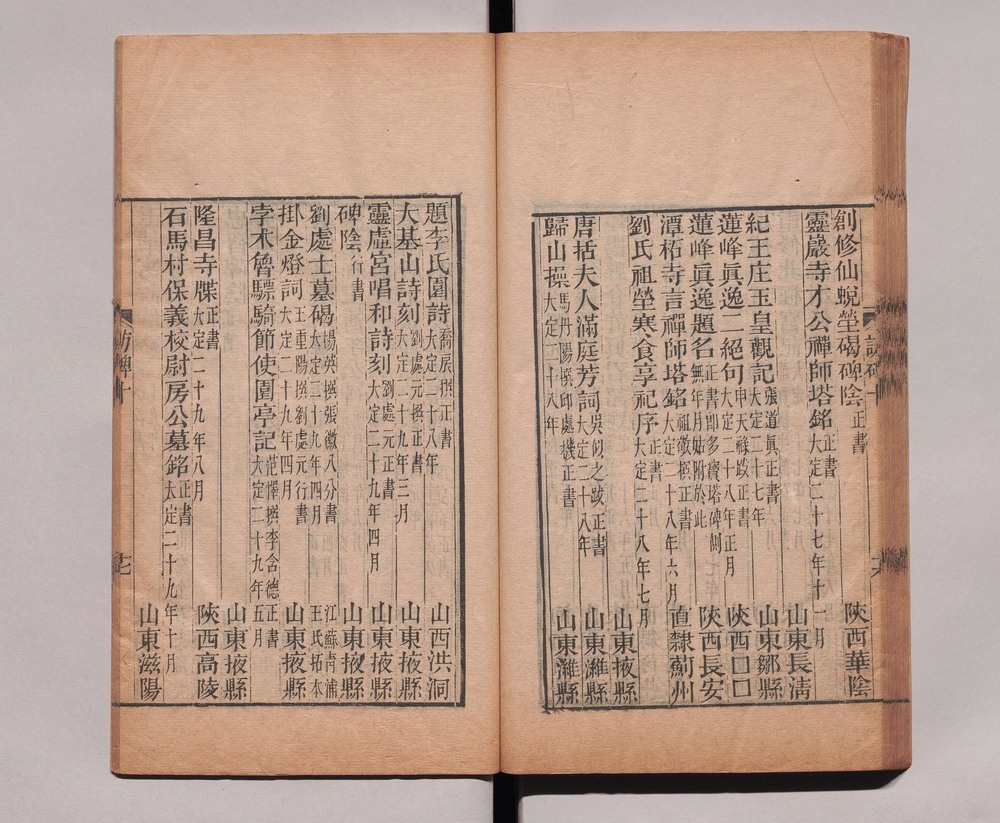 創修仙蛻塋碣陰正書 陝西華陰
靈巖寺才公禪師塔銘正書大定二十七年十一月 山東長清
紀王庄玉皇觀記張道真正書大定二十七年 山東鄒縣
蓮峰真逸二絕句申天祿跋正書大定二十八年正月 陝西囗囗
蓮峰真逸題名正書即多寶塔碑側無年月姑附於此 陝西長安
潭柘寺言禪師塔銘祖敬撰正書大定二十八年六月 直隸薊州
劉氏祖塋寒食享祀序正書大定二十八年七月 山東掖縣
唐括夫人滿庭芳詞吳似之跋正書大定二十八年 山東濰縣
歸山操馬丹陽撰邱處機正書大定二十八年 山東濰縣
題李氏園詩喬扆撰正書大定二十八年 山西洪洞
大基山詩刻劉處元撰正書大定二十九年三月 山東掖縣
靈虛宮唱和詩刻劉處元正書大定二十九年四月 山東掖縣
碑陰行書 山東掖縣
劉處士墓碣楊英撰張徽八分書大定二十九年四月 江蘇青浦王氏拓本
掛金燈詞王重陽撰劉處元行書大定二十九年四月 山東掖縣
孛朮魯驃騎節使園亭記范懌撰李含德正書大定二十九年五月 山東掖縣
隆昌寺牒正書大定二十九年八月 陝西高陵
石馬村保義校尉房公墓銘正書大定二十九年十月 山東滋陽
訪碑十